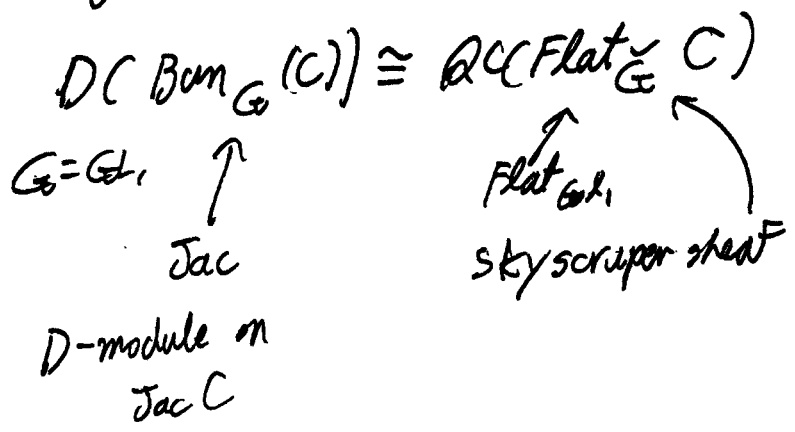 D( Bun_G (C)) ≅ QC(Flat_Ǧ C)
G=GL₁
Flat_GL₁
Jac
skyscraper sheaf
D-module on
Jac C